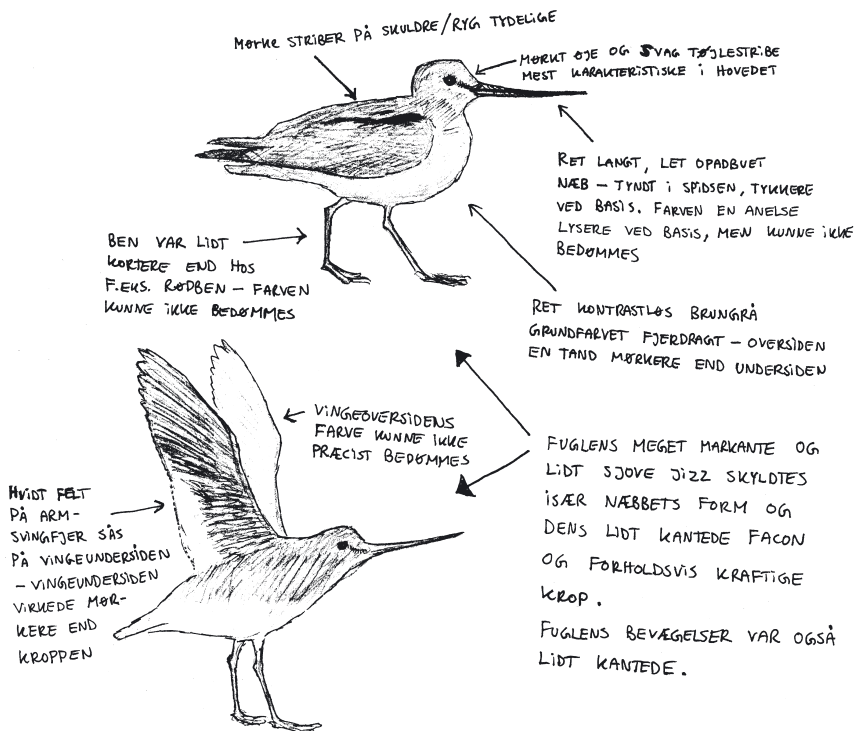 MØRKE STRIBER PÅ SKULDRE/RYG TYDELIGE
MØRKT ØJE OG SVAG TØJLESTRIBE
MEST KARAKTERISTISKE i HOVEDET
RET LANGT, LET OPADBUET
NÆB – TYNDT i SPIDSEN, TYKKERE
VED BASIS. FARVEN EN ANELSE
LYSERE VED BASIS, MEN KUNNE iKKE
BEDØMMES
BEN VAR LIDT
KORTERE END HOS
F.EKS. RØDBEN – FARVEN
KUNNE iKKE BEDØMMES
RET KONTRASTLØS BRUNGRÅ
GRUNDFARVET FJERDRAGT – OVERSIDEN
EN TAND MØRKERE END UNDERSIDEN
VINGEOVERSIDENS
FARVE KUNNE iKKE
PRÆCIST BEDØMMES
HVIDT FELT
PÅ ARM-
SVINGFJER SÅS
PÅ VINGEUNDERSIDEN
– VINGEUNDERSIDEN
VIRKEDE MØR-
KERE END
KROPPEN
FUGLENS MEGET MARKANTE OG
LIDT SJOVE JIZZ SKYLDTES
ISÆR NÆBBETS FORM OG
DENS LIDT KANTEDE FACON
OG FORHOLDSVIS KRAFTIGE
KROP.
FUGLENS BEVÆGELSER VAR OGSÅ
LIDT KANTEDE.